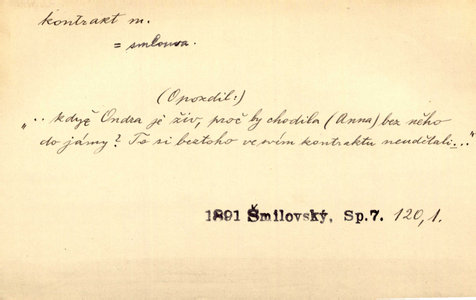 kontrakt m.
= smlouva.
(Opozdil:)
„.. když Ondra je živ, proč by chodila (Anna) bez něho
do jámy? To si beztoho ve svím kontraktu neudělali..."
1891 Šmilovský, Sp.7. 120,1.